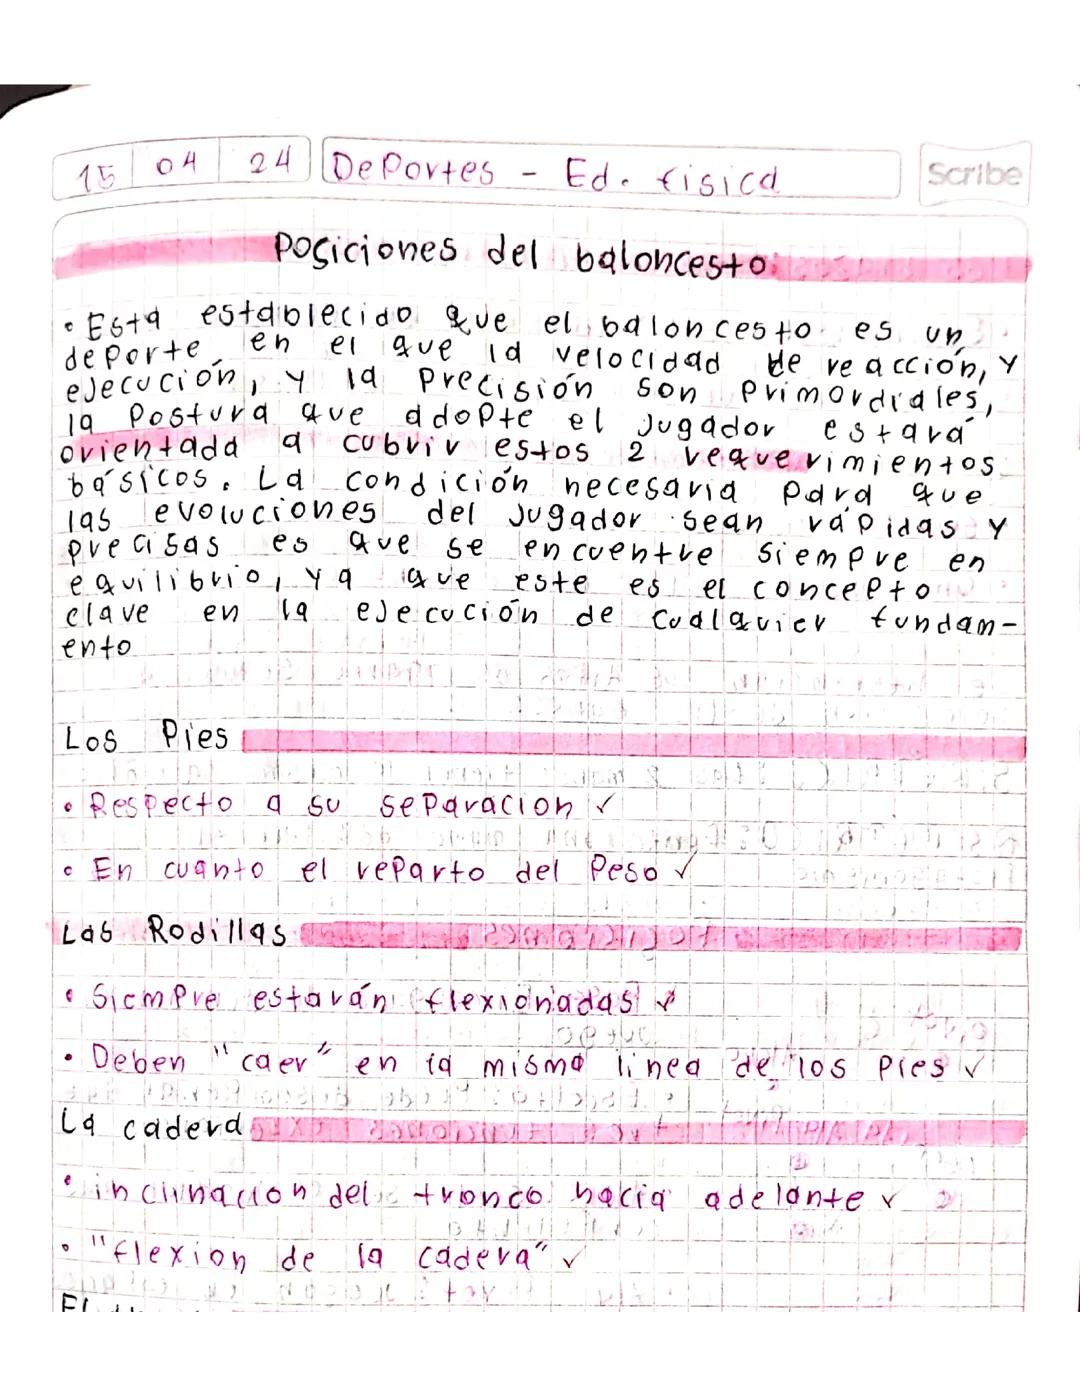 15 04 24 Deportes - Ed. fisica Scribe
Posiciones del baloncesto
• Esta establecido que el baloncesto es un
deporte en el que la velocidad de reacción, y
ejecución, y la precisión son primordiales,
la postura que adopte el jugador estará
orientada a cubrir estos 2 requerimientos
básicos. La condición necesaria para que
las evoluciones del jugador sean rápidas y
precisas es que se encuentre siempre en
equilibrio, ya que este es el concepto
clave en la ejecución de cualquier fundam-
ento
Los Pies
• Respecto a su separacion ✓
• En cuanto el reparto del Peso ✓
Las Rodillas
• Siempre estarán flexionadas ✓
• Deben "caer" en la misma linea de los Pies ✓
La cadera
• inclinacion del tronco hacia adelante ✓
• "flexion de la cadera" ✓
El